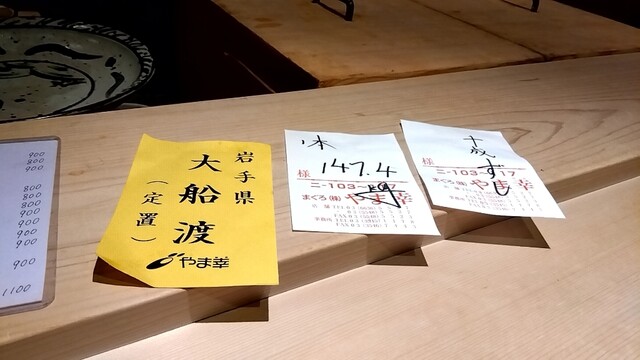 900
800
900
800
800
900
900
960
900
900
1100
岩手県
大船渡
(定置)
やま幸
1本
147.4
様
ニ-103~
まぐろ(株)やま幸
十成ずし
様
ニ-103~17
まぐろ(株)やま幸